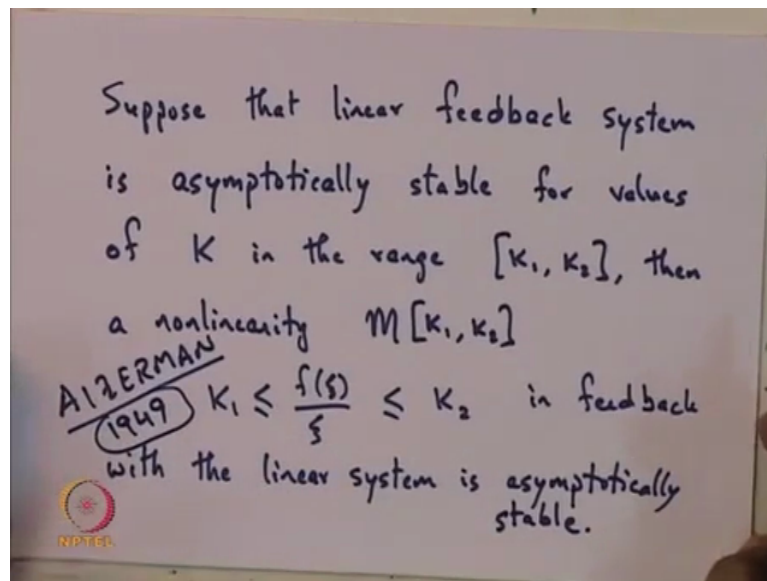 Suppose that linear feedback system
is asymptotically stable for values
of K in the range [K₁, K₂], then
a nonlinearity M[K₁, K₂]
AIZERMAN
1949
K₁ ≤ f(ξ)/ξ ≤ K₂ in feedback
with the linear system is asymptotically
stable.
NPTEL